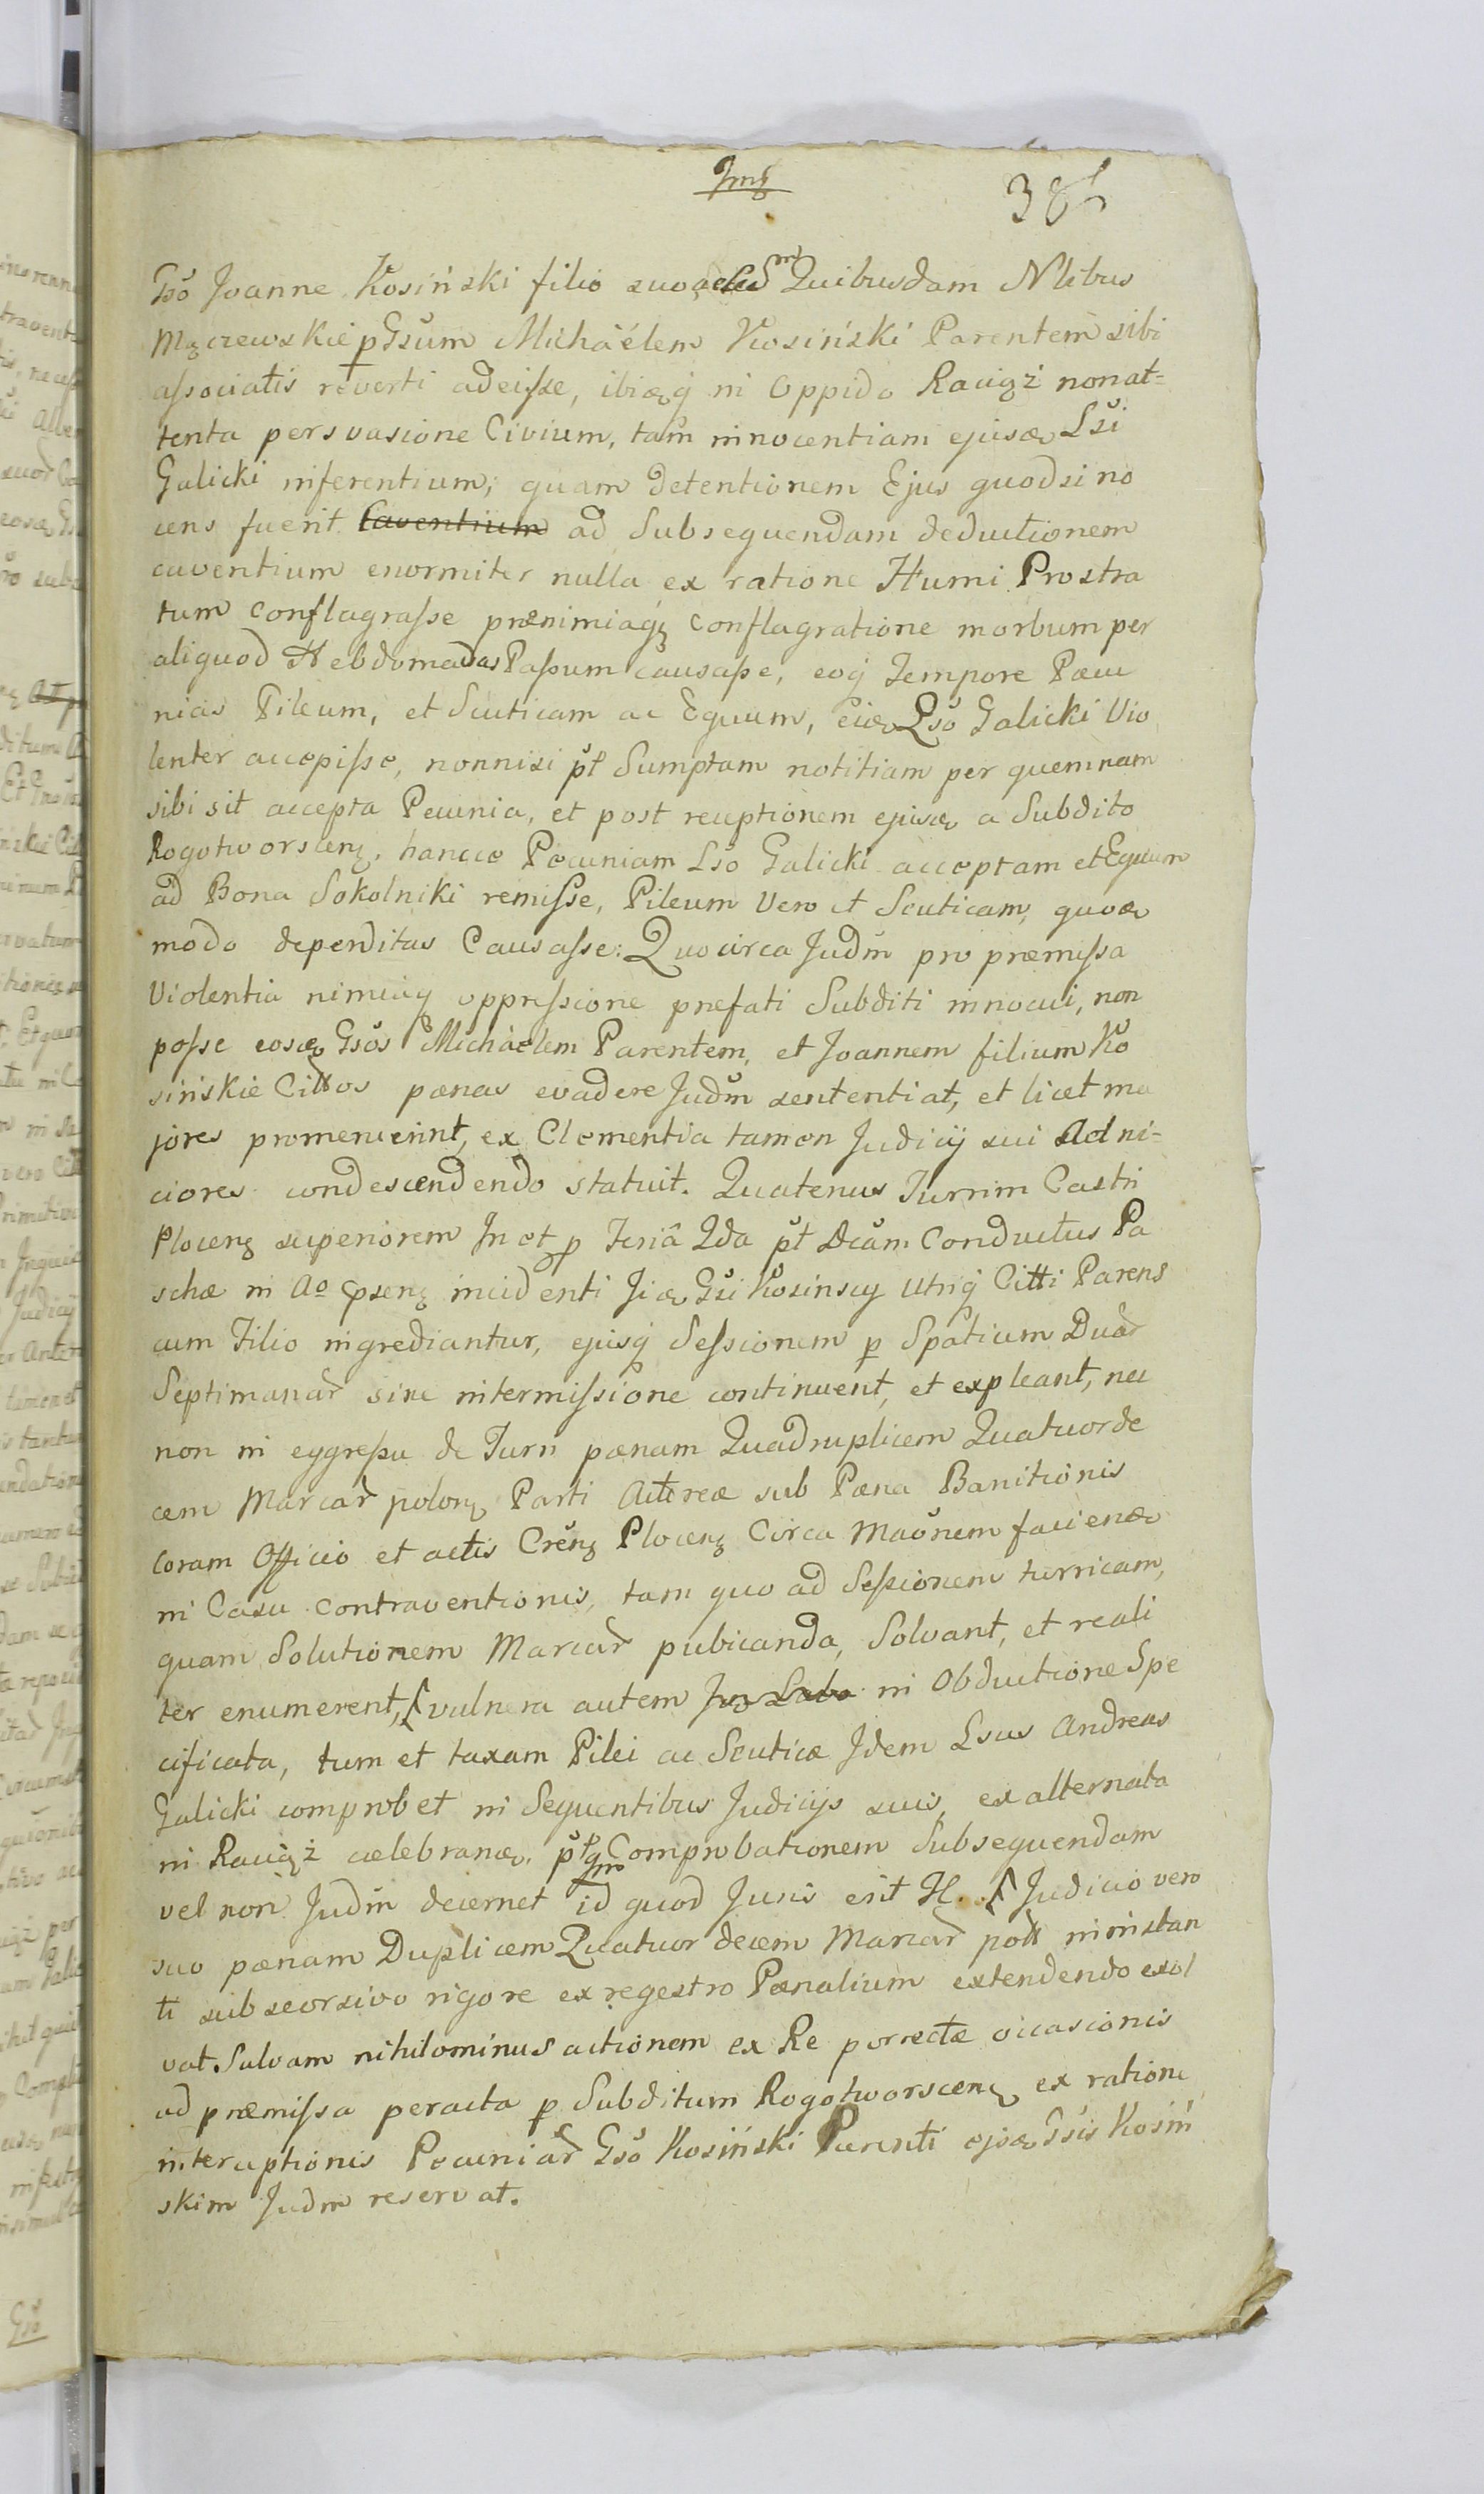 38
Gsō Joanne Kosiński filio suo Quibusdam Nlibus
Mączewskie p Gsūm Michäélem Kosiński Parentem sibi
aſsociatis reverti adeiſse, ibiq in Oppido Raciąż non at=
tenta persvasione Civium, tam innocentiam ejusd Lsi
Galicki inferentium, quam detentionem Ejus quodsi no
cens fuerit Caventium ad Subsequendam deductionem
caventium enormiter nulla ex ratione Humi Prostra
tum conflagraſse prænimiaq conflagratione morbum per
aliquod Hebdomadas Paſsum causaſse, eoq Tempore Pecu
nias Pileum, et Scuticam ac Equum, eid Lsō Galicki Vio
lenter accepiſse, nonnisi pt Sumptam notitiam per quemnam
sibi sit accepta Pecunia, et post receptionem ejusd a Subdito
Rogotworscenȝ, hancce Pecuniam Lsō Galicki acceptam et Equum
ad Bona Sokolniki remiſse, Pileum Vero et Scuticam, quod
modo deperditas Causaſse: Quocirca Judm pro præmiſsa
Violentia nimiaq oppreſsione prefati Subditi innocui, non
poſse eosd Gsōs Michäelem Parentem, et Joannem filium Ko
sińskie Cittos pænas evadere Judm sententiat, et licet ma
jores promeruerint, ex Clementia tamen Judicij sui ad ni=
ciores condescendendo statuit. Quatenus Turrim Castri
Plocenȝ superiorem In et p Feriā 2da pt Dcām Conductus Pa
schæ in Ao psenȝ incidenti Iid Gsi Kosinscy utriq Citti Parens
cum Filio ingrediantur, ejusq Seſsionem p Spatium Duar
Septimanar sine intermiſsione continuent, et expleant, nec
non in eggreſsu de Turri pænam Quadruplicem Quatuorde
cem Marcar polonȝ Parti Actoreæ sub Pæna Banitionis
coram Officio et actis Crenȝ Plocenȝ Circa Maōnem faciend
in Casu contraventionis, tam quo ad Seſsionem turricam,
quam Solutionem Marcar pubicanda, Solvant, et reali
ter enumerent, vulnera autem in Obductione Spe
cificata, tum et taxam Pilei ac Scuticæ Idem Lsus Andreas
Galicki comprobet in Sequentibus Judicijs suis, ex alternata
in Raciąż celebrand. pt qm Comprobationem Subsequendam
vel non Judm decernet id quod Juris erit Judicio vero
suo pænam Duplicem Quatuor decem Marcar poll in instan
ti sub seorsivo rigore ex regestro Pænalium extendendo exol
vat. Salvam nihilominus actionem ex Re porrectæ occasionis
ad præmiſsa peracta p Subditum Rogotworscenȝ ex ratione
interceptionis Pecuniar Gsō Kosiński Parenti ejsd Gsis Kosiń
skim Judm reservat.